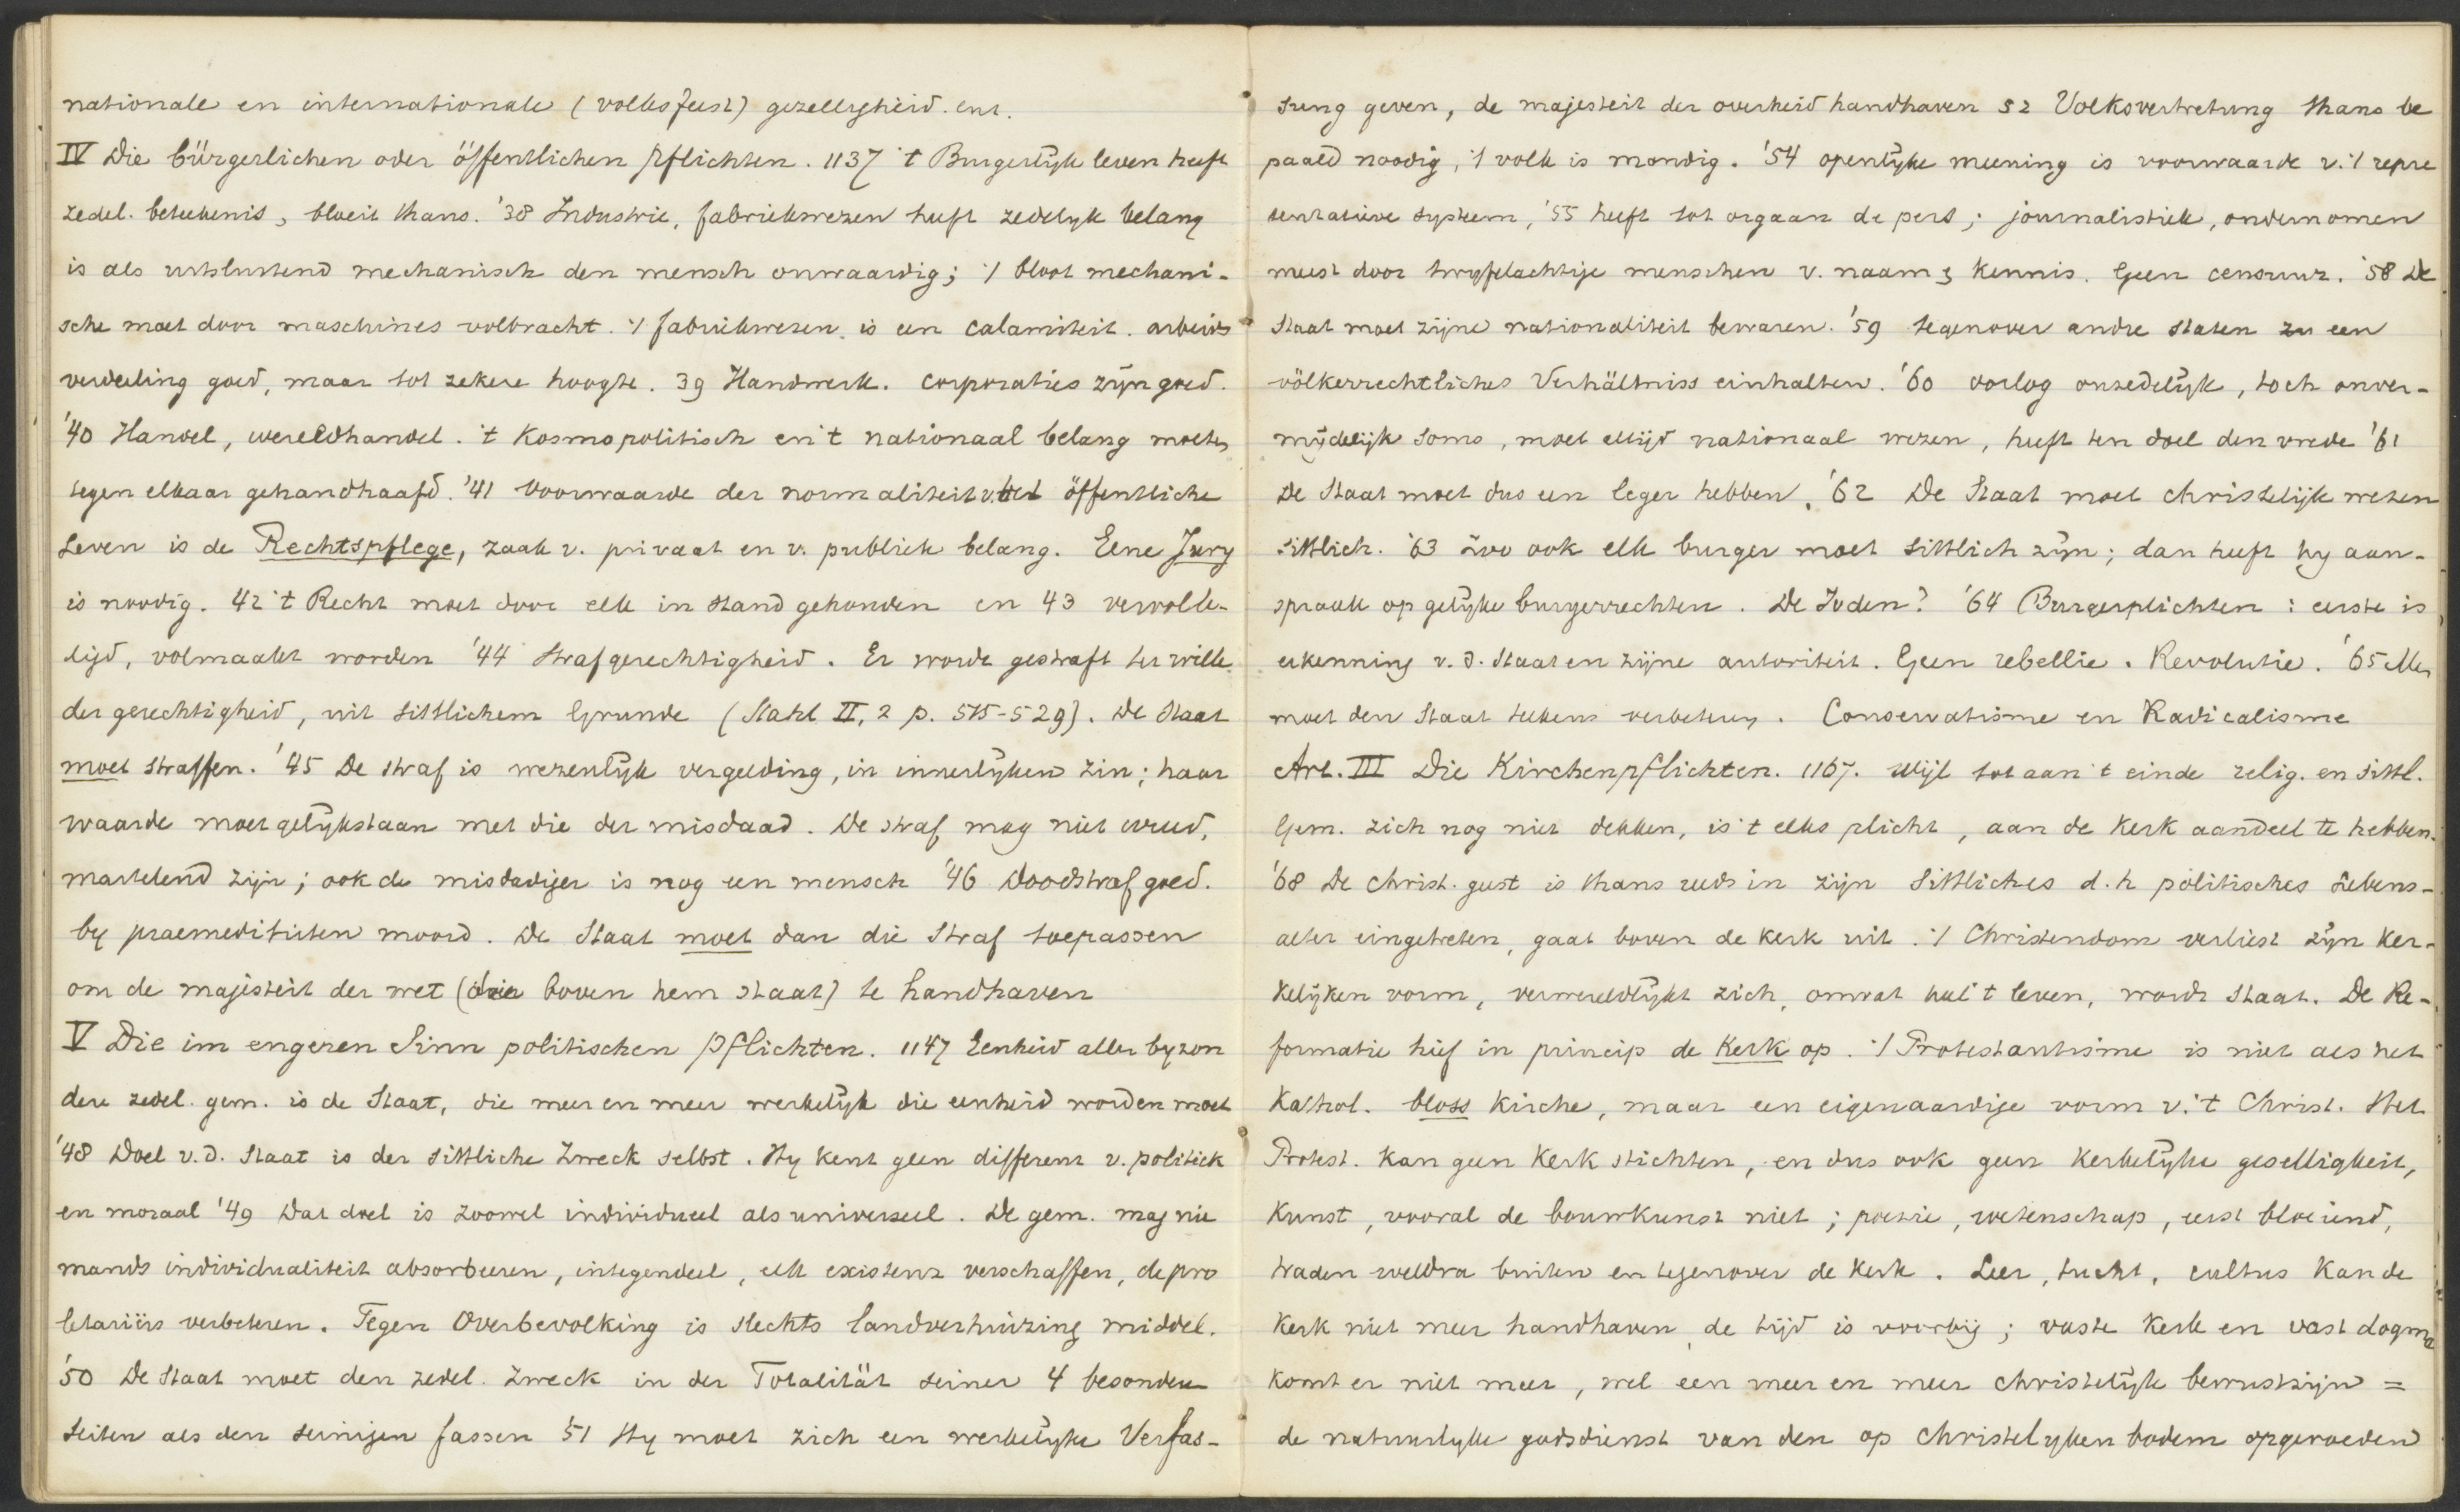 nationale en internationale (volksfeest) gezelligheid. enz.
IV Die bürgerlichen oder öffentlichen Pflichten. 1137 't Burgerlijk leven heeft
zedel. beteekenis, bloeit thans. '38 Industrie, fabriekwezen heeft zedelyk belang
is als uitsluitend mechanisch den mensch onwaardig; 't bloot mechani-
sche moet door maschines volbracht. 't fabriekwezen is een calamiteit. arbeids
verdeeling goed, maar tot zekere hoogte. 39 Handwerk. Corporaties zijn goed.
'40 Handel, wereldhandel. 't Kosmopolitisch en 't nationaal belang moeten
tegen elkaar gehandhaafd. '41 Voorwaarde der normaliteit v. het öffentliche
Leven is de Rechtspflege, zaak v. privaat en v. publiek belang. Eene Jury
is noodig. 42 't Recht moet door elk in stand gehouden en 43 vervolle-
digd, volmaakt worden '44 Strafgerechtigheid. Er wordt gestraft ter wille
der gerechtigheid, uit sittlichem Grunde (Stahl II, 2 p. 515-529). De Staat
moet straffen. '45 De straf is wezenlijk vergelding, in innerlijken zin; haar
waarde moet gelijkstaan met die der misdaad. De straf mag niet wreed,
martelend zijn; ook de misdadiger is nog een mensch '46 Doodstraf goed.
by praemediteerden moord. De Staat moet dan die Straf toepassen
om de majesteit der wet (die boven hem staat) te handhaven
V Die im engeren Sinn politischen Pflichten. 1147 Eenheid aller byzon
dere zedel. gem. is de Staat, die meer en meer werkelijk die eenheid worden moet
'48 Doel v. d. Staat is der sittliche Zweck selbst. Hy kent geen different v. politiek
en moraal '49 Dat doel is zoowel individueel als universeel. De gem. mag nie
mands individualiteit absorbeeren, integendeel, elk existenz verschaffen, de pro
letariërs verbeteren. Tegen Overbevolking is slechts landverhuizing middel.
'50 De Staat moet den zedel. Zweck in der Totalität seiner 4 besondern
Seiten als den seinigen fassen '51 Hy moet zich een werkelijke Verfas-
sung geven, de majesteit der overheid handhaven 52 Volksvertretung thans be
paald noodig, 't volk is mondig. '54 openlijke meening is voorwaarde v. 't repre
sentatieve systeem, '55 heeft tot orgaan de pers; journalistiek, ondernomen
meest door twyfelachtige menschen v. naam & kennis. Geen censuur. '58 De
Staat moet zijne nationaliteit bewaren. '59 tegenover andre staten zu een
völkerrechtliches Verhältniss einhalten. '60 oorlog onzedelijk, toch onver-
mijdelijk soms, moet altijd nationaal wezen, heeft ten doel den vrede '61
De Staat moet dus een leger hebben. '62 De Staat moet christelijk wezen
sittlich. '63 Zoo ook elk burger moet sittlich zijn; dan heeft hy aan-
spraak op gelijke burgerrechten. De Joden? '64 Burgerplichten: eerste is
erkenning v. d. Staat en zijne autoriteit. Geen rebellie. Revolutie. '65 Men
moet den Staat telkens verbeteren. Conservatisme en Radicalisme
Art. III Die Kirchenpflichten. 1167. Wijl tot aan 't einde relig. en sittl.
Gem. zich nog niet dekken, is 't elks plicht, aan de Kerk aandeel te hebben.
'68 De Christ. geest is thans reeds in zijn sittliches d. h politisches Lebens-
alter eingetreten, gaat boven de Kerk uit. 't Christendom verliest zijn Ker-
kelijken vorm, verwereldlijkt zich, omvat heel 't leven, wordt Staat. De Re-
formatie hief in princip de Kerk op. 't Protestantisme is niet als het
Kathol. bloss Kirche, maar een eigenaardige vorm v. 't Christ. Het
Protest. Kan geen Kerk stichten, en dus ook geen Kerkelijke geselligkeit,
Kunst, vooral de bouwkunst niet; poëzie, wetenschap, eerst bloeiend,
traden weldra buiten en tegenover de Kerk. Leer, tucht, cultus kan de
Kerk niet meer handhaven, de tijd is voorbij; vaste Kerk en vast dogma
komt er niet meer, wel een meer en meer christelijk bewustzijn =
de natuurlyke godsdienst van den op christelyken bodem opgevoeden